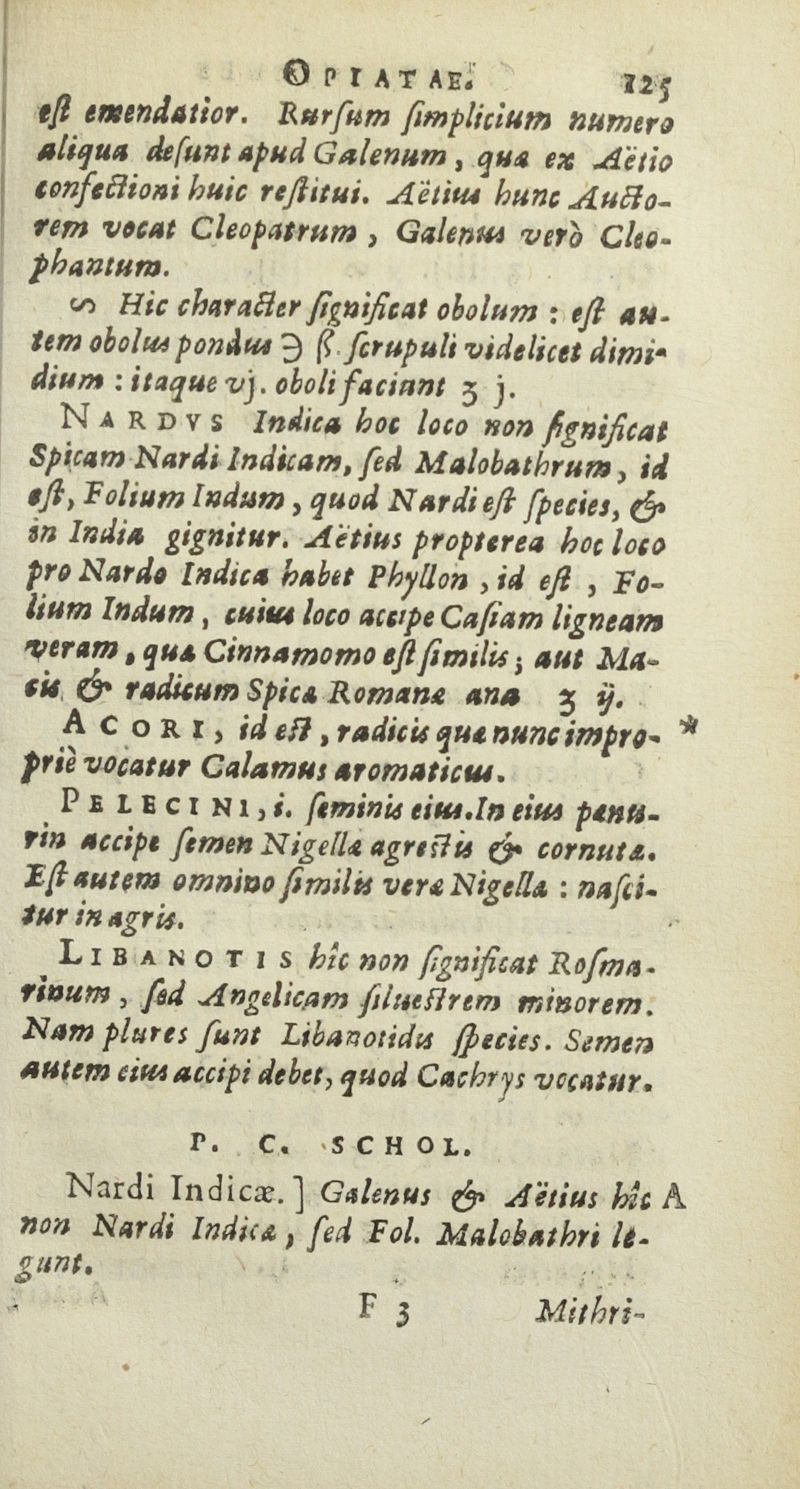 OPIATAE. 125
eſt emendatior. Rurſum ſimplicium numero
aliqua deſunt apud Galenum, quæ ex Aëtio
confectioni huic reſtitui. Aëtius hunc Aucto-
rem vocat Cleopatrum, Galenus verò Cleo-
phantum.
Hic character ſignificat obolum : eſt au-
tem obolus pondus ℈ ß. ſcrupuli videlicet dimi-
dium : itaque vj. oboli faciunt ʒ j.
NARDVS Indica hoc loco non ſignificat
Spicam Nardi Indicam, ſed Malobathrum, id
eſt, Folium Indum, quod Nardi eſt ſpecies, &
in India gignitur. Aëtius propterea hoc loco
pro Nardo Indica habet Phyllon, id eſt, Fo-
lium Indum, cuius loco accipe Caſiam ligneam
veram, quæ Cinnamomo eſt ſimilis; aut Ma-
cis & radicum Spicæ Romanæ ana ʒ ij.
ACORI, id eſt, radicis quæ nunc impro- *
priè vocatur Calamus aromaticus.
PELECINI, i. ſeminis eius. In eius penu-
rin accipe ſemen Nigellæ agreſtis & cornutæ.
Eſt autem omnino ſimilis veræ Nigella : naſci-
tur in agris.
LIBANOTIS hîc non ſignificat Roſma-
rinum, ſed Angelicam ſilueſtrem minorem.
Nam plures ſunt Libanotidis ſpecies. Semen
autem eius accipi debet, quod Cachrys vocatur.
P. C. SCHOL.
Nardi Indicæ.] Galenus & Aëtius hîc A
non Nardi Indicæ, ſed Fol. Malobathri le-
gunt.
F 3 Mithri-